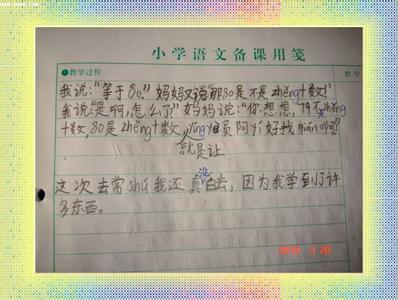 小学语文备课用笺
教学过程 教学
我说:“等于80。”妈妈又说:“那80是不是zhěng十数?”
我说:“是啊,怎么了?”妈妈说:“你想想,79不是zhěng
十数,80是zhěng十数,yíngyè员阿yí好找qián吗?”
就是让
没
这次去常shú我还真白去,因为我学到了许
多东西。